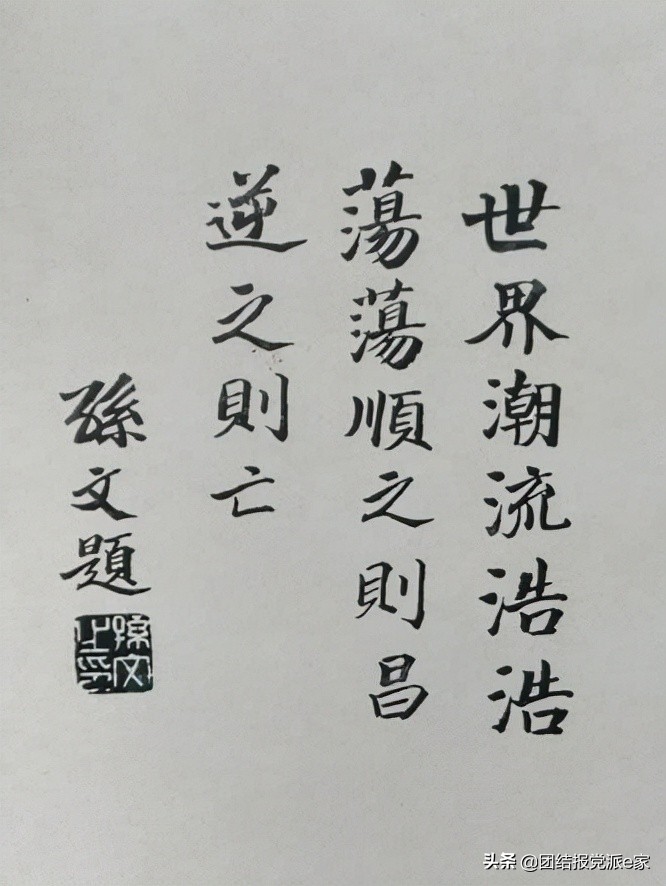 世界潮流浩浩
蕩蕩順之則昌
逆之則亡
孫文題
孫文之印
头条 @团结报党派e家